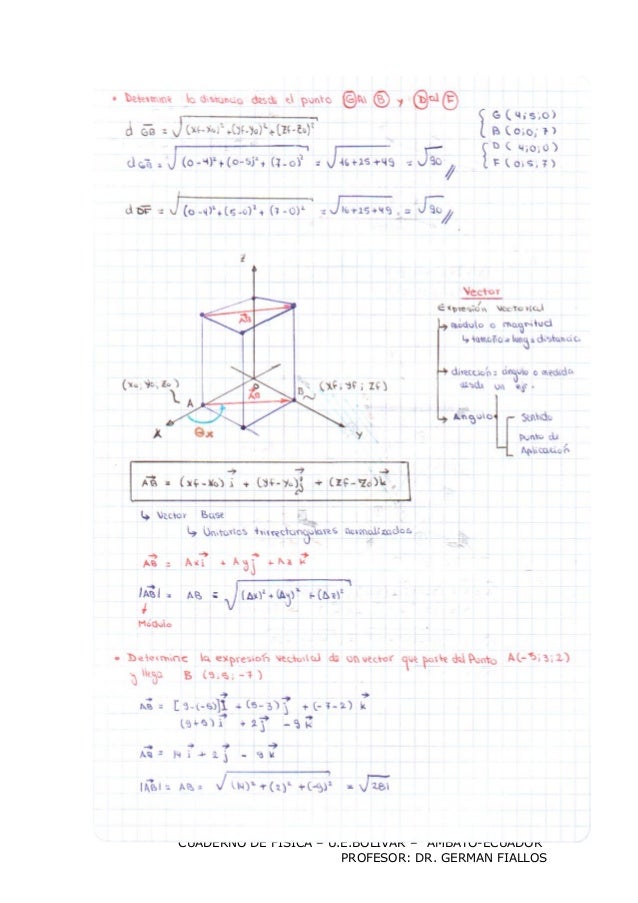 • Determine la distancia desde el punto G al B y D al F
d GB = √(xf-xo)²+(yf-yo)²+(zf-zo)²
d GB = √(0-4)²+(0-5)²+(7-0)² = √16+25+49 = √90 //
d DF = √(0-4)²+(5-0)²+(7-0)² = √16+25+49 = √90 //
G (4;5;0)
B (0;0;7)
D (4;0;0)
F (0;5;7)
Z
AB
(xo, yo, zo)
A
AB
B
(xf; yf; zf)
X
θx
Y
Vector
Expresión Vectorial
→ módulo o magnitud
↳ tamaño = long = distancia
→ dirección: ángulo o medida
desde un eje.
→ Ángulo
Sentido
Punto de
Aplicación
AB = (xf-xo) i + (yf-yo) j + (zf-zo) k
↳ Vector Base
↳ Unitarios trirrectangulares normalizados
AB = Ax i + Ay j + Az k
|AB| = AB = √(Δx)²+(Δy)²+(Δz)²
Módulo
• Determine la expresión vectorial de un vector que parte del Punto A(-5;3;2)
y llega B (9;5;-7)
AB = [9-(-5)] i + (5-3) j + (-7-2) k
(9+5) i + 2 j - 9 k
AB = 14 i + 2 j - 9 k
|AB| = AB = √(14)²+(2)²+(-9)² = √281
CUADERNO DE FISICA – U.E.BOLIVAR – AMBATO-ECUADOR
PROFESOR: DR. GERMAN FIALLOS